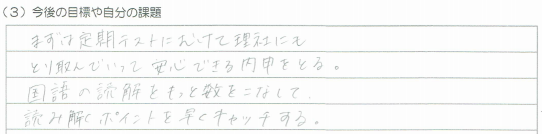 (3) 今後の目標や自分の課題
まずは定期テストにむけて理社にも
とり組んでいって安心できる内申をとる。
国語の読解をもっと数をこなして、
読み解くポイントを早くキャッチする。